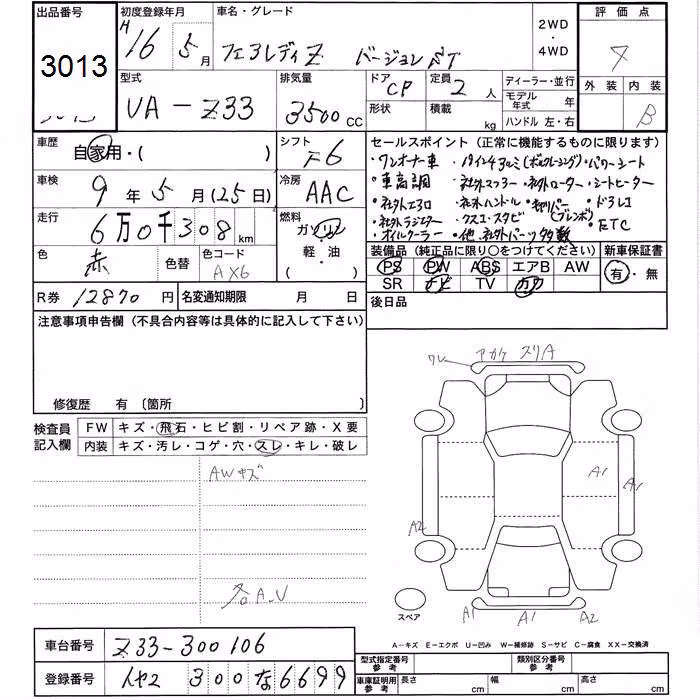 出品番号 初度登録年月 車名・グレード 2WD・4WD 評価点
3013 H16 5月 フェアレディZ バージョンST
外装 内装
B
型式 排気量 ドア 定員 ディーラー・並行
UA-Z33 3500cc CP 2人 モデル年式 年
形状 積載 kg ハンドル 左・右
車歴 シフト セールスポイント (正常に機能するものに限ります)
自家用・( ) F6 ・ワンオーナー車
車検 冷房 ・車高調 社外マフラー・社外ローター・シートヒーター
9年5月(25日) AAC ・社外エアロ ・社外ハンドル
走行 燃料 ・社外ラジエター
6万0千308km ガソリン ・オイルクーラー ・他、社外パーツ多数 ・ETC
軽・油
( )
色 色替 色コード 装備品 (純正品に限り○をつけてください) 新車保証書
赤 AX6 PS PW ABS エアB AW 有・無
SR ナビ TV カワ
R券 12870円 名変通知期限 月 日 後日品
注意事項申告欄 (不具合内容等は具体的に記入して下さい)
修復歴 有 〔箇所 〕
検査員記入欄 FW キズ・飛石・ヒビ割・リペア跡・X要
内装 キズ・汚レ・コゲ・穴・スレ・キレ・破レ
AWキズ
各A.U
ワレ アカケ スリA
A1 A1
A2 A2
スペア
A1 A1 A2
A-キズ E-エクボ U-凹み W-補修跡 S-サビ C-腐食 XX-交換済
車台番号 Z33-300106
型式指定番号 参考 類別区分番号 参考
登録番号 300 な 6699
車庫証明用 参考 長さ cm 幅 cm 高さ cm